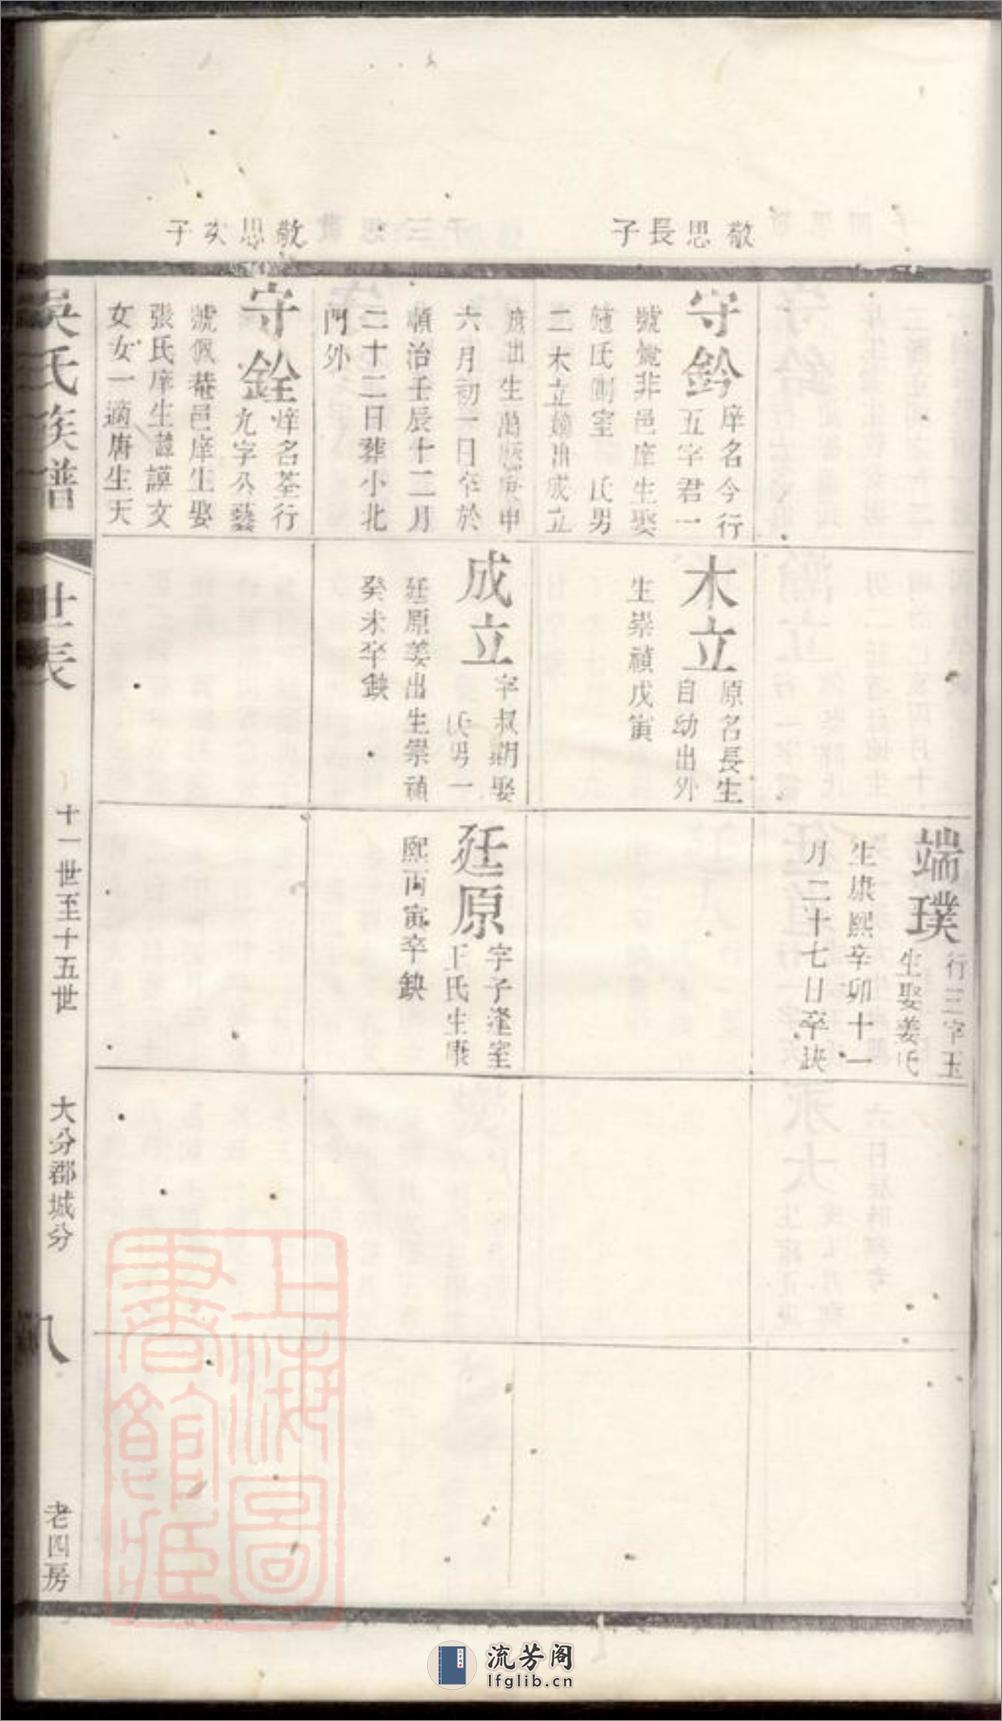 敬思長子
敬思次子
守鈐
庠名今行
五字君一
號覺非邑庠生娶
氏側室 氏男
二木立嫡出成立
庶出生萬曆庚申
六月初一日卒於
順治壬辰十二月
二十二日葬小北
門外
守銓
庠名荃行
九字公藝
號佩菴邑庠生娶
張氏庠生諱謨文
女女一適唐生天
木立
原名長生
自幼出外
生崇禎戊寅
成立
字叔期娶
氏男一
廷原姜出生崇禎
癸未卒缺
端璞
行三字玉
生娶姜氏
生康熙辛卯十一
月二十七日卒缺
廷原
字子逢室
王氏生康
熙丙寅卒缺
吳氏族譜
世表
十一世至十五世
大分郡城分
八
老四房
上海圖書館藏
流芳阁
lfglib.cn